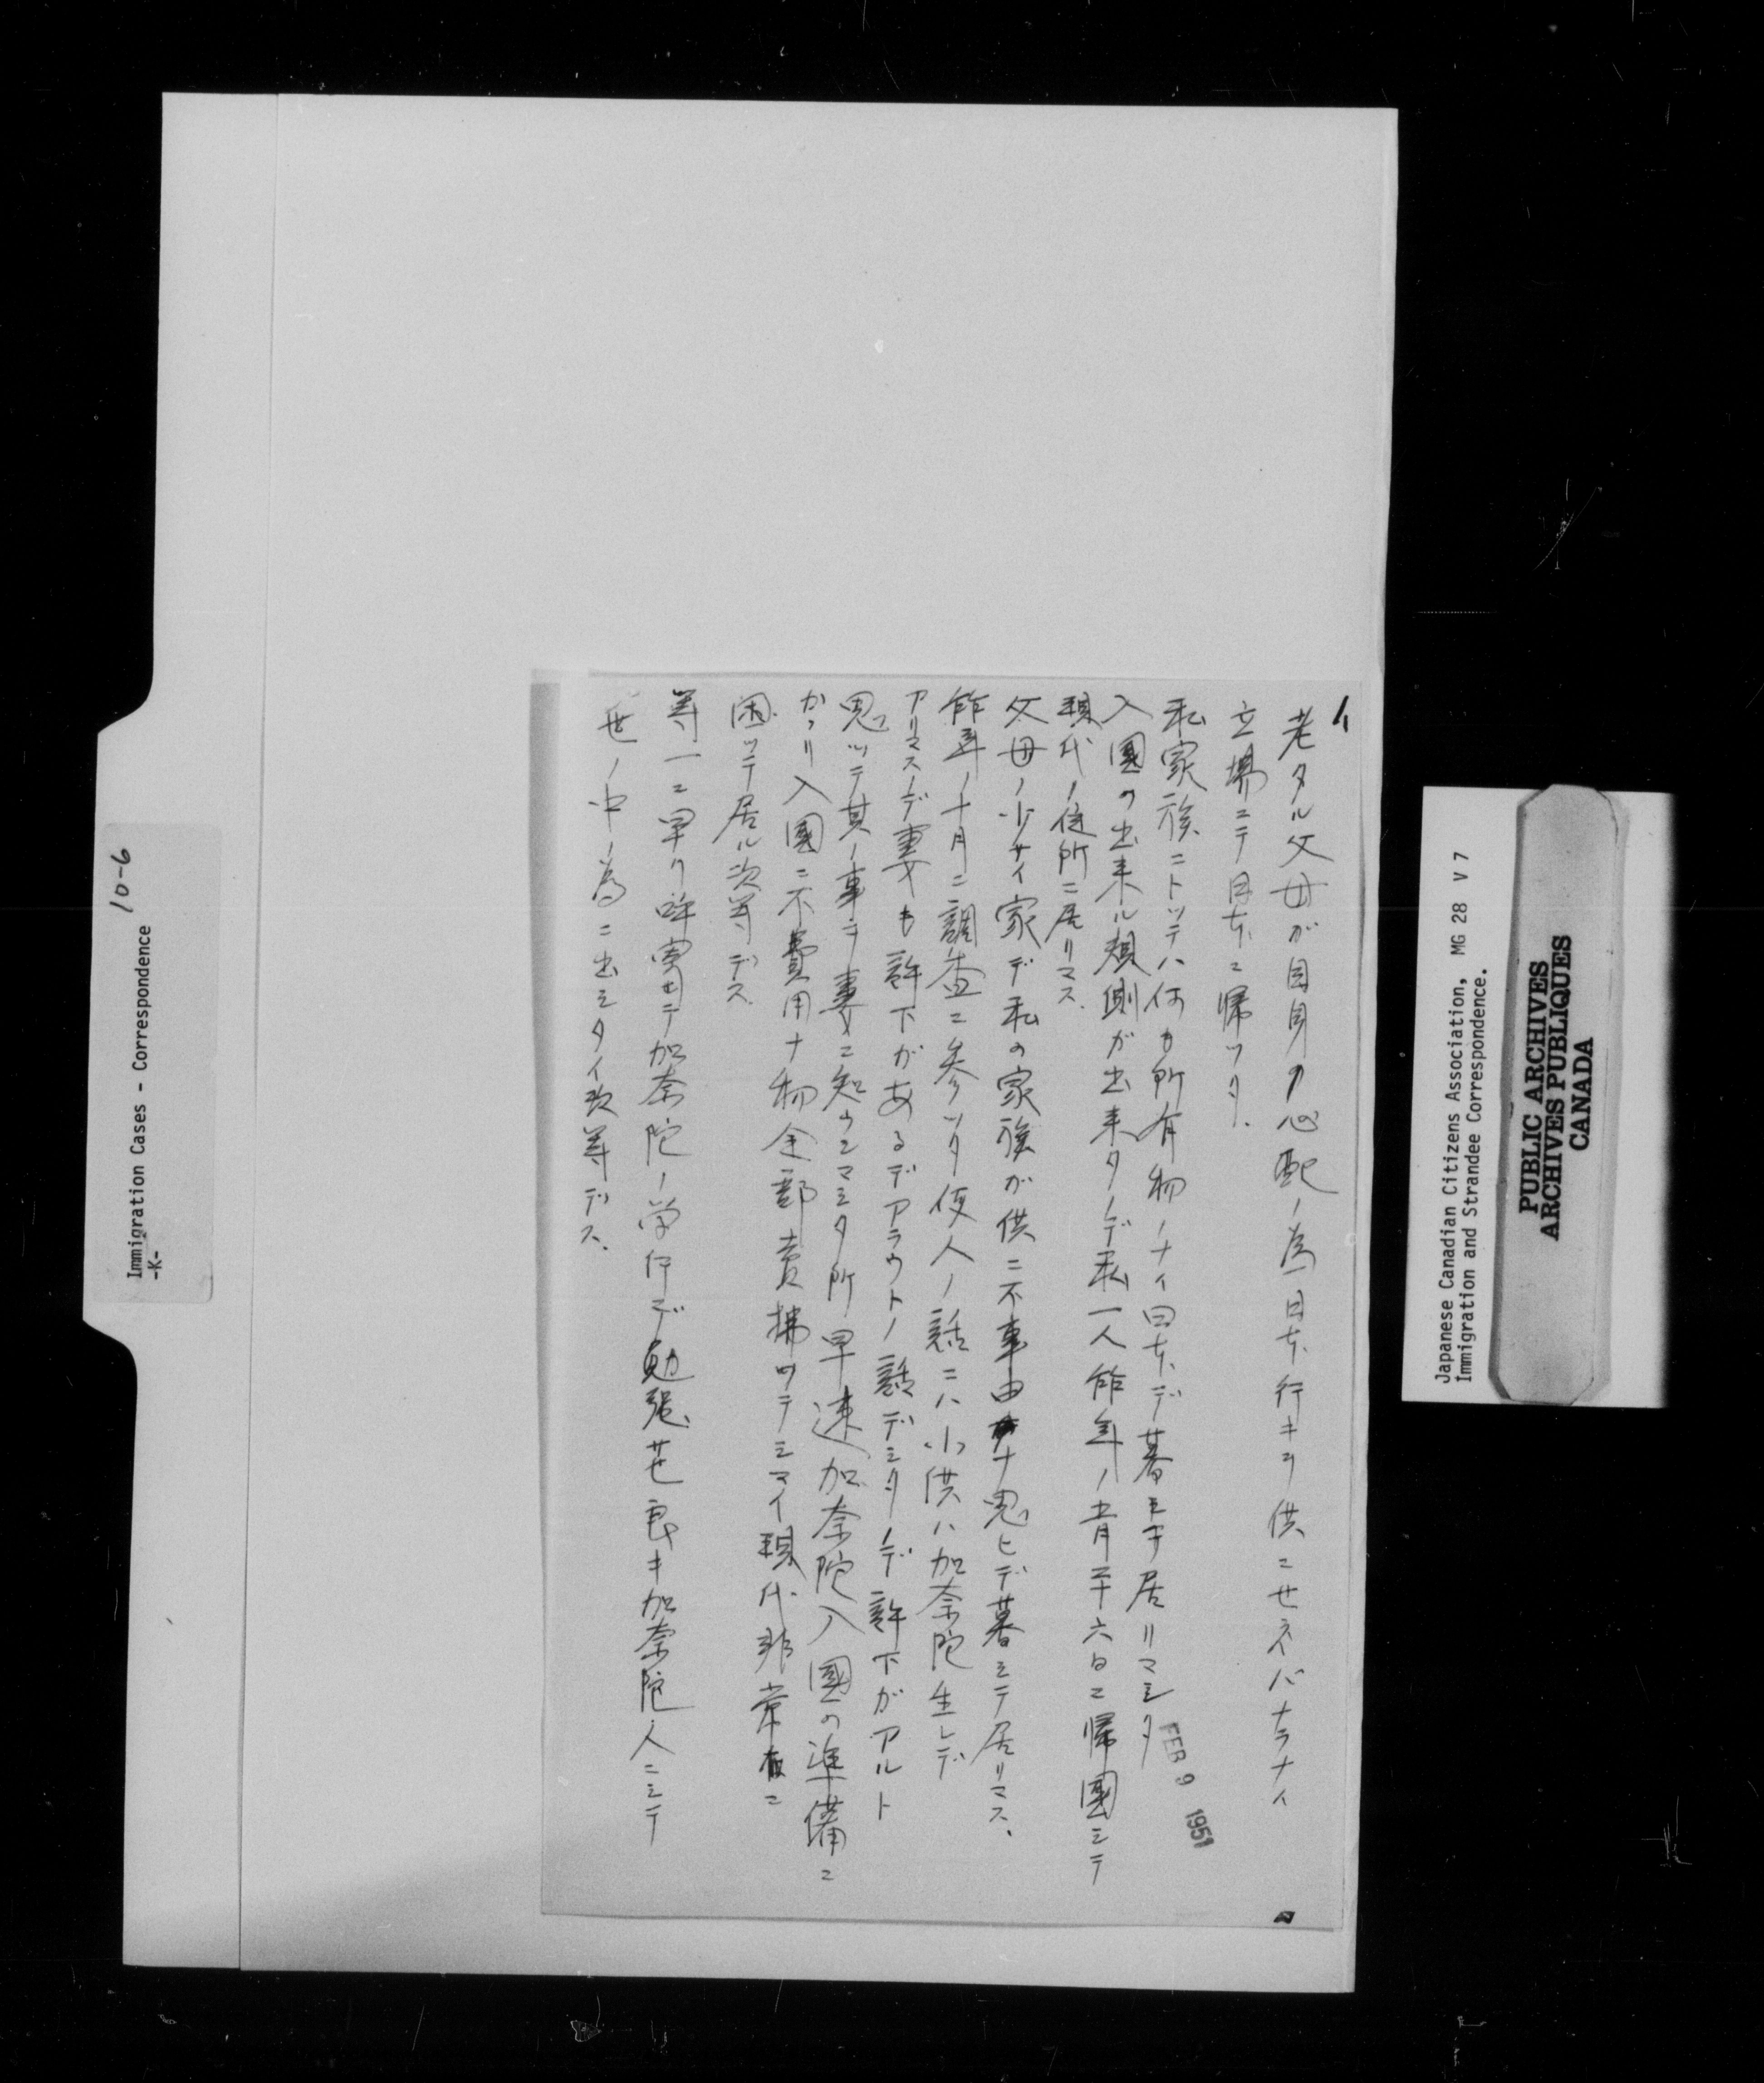 1
老タル父母が自身ノ心配ノ為日本行キヲ供ニセネバナラナイ
立場ニテ日本ニ帰ツタ.
私家族ニトツテハ何も所有物ノナイ日本デ暮シテ居リマシタ
入國の出来ル規則が出来タノデ私一人昨年ノ 六日ニ帰國シテ
現代ノ住所ニ居リマス.
父母ノ少サイ家デ私の家族が供ニ不事由ナ思ヒデ暮シテ居リマス、
昨年ノ十月ニ調査ニ参ツタ使人ノ話ニハ小供ハ加奈陀生レデ
アリマスノデ妻も許下があるデアラウトノ話デシタノデ許下がアルト
思ツテ其ノ事ヲ妻ニ知ラシマシタ所早速加奈陀入國の準備ニ
かゝリ入國ニ不費用ナ物全部賣拂ツテシマイ現代非常ニ
困ツテ居ル次第デス.
第一ニ早ク呼寄セテ加奈陀ノ学行デ勉强サセ良キ加奈陀人ニシテ
世ノ中ノ為ニ出シタイ次第デス.
FEB 9 1951
Immigration Cases - Correspondence 10-6
-K-
Japanese Canadian Citizens Association, MG 28 V 7
Immigration and Strandee Correspondence.
PUBLIC ARCHIVES
ARCHIVES PUBLIQUES
CANADA